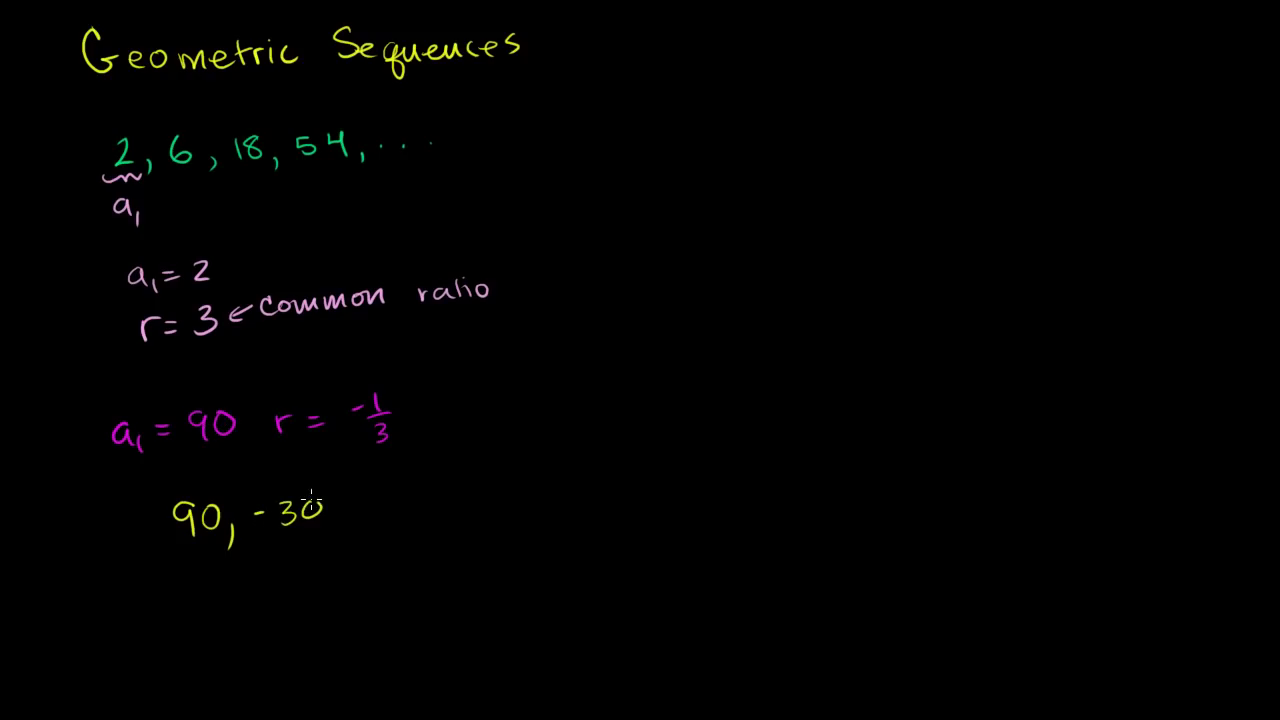 Geometric Sequences
2, 6, 18, 54, ...
a₁
a₁ = 2
r = 3 ← Common ratio
a₁ = 90 r = -1/3
90, -30